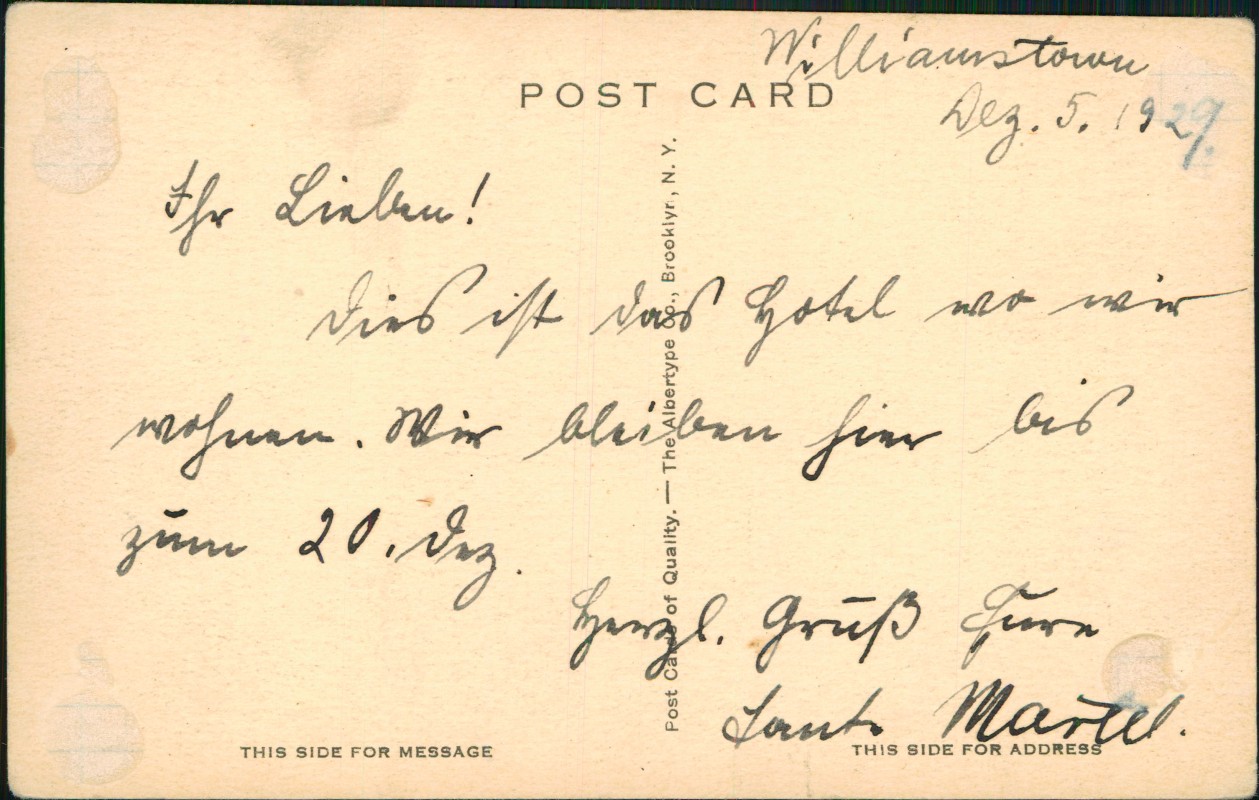 Williamstown
POST CARD
Dez. 5. 1929.
Ihr Lieben!
Dies ist das Hotel wo wir
wohnen. Wir bleiben hier bis
zum 20. Dez.
Herzl. Gruß Eure
Tante
Post Cards of Quality. — The Albertype Co., Brooklyn, N. Y.
THIS SIDE FOR MESSAGE
THIS SIDE FOR ADDRESS